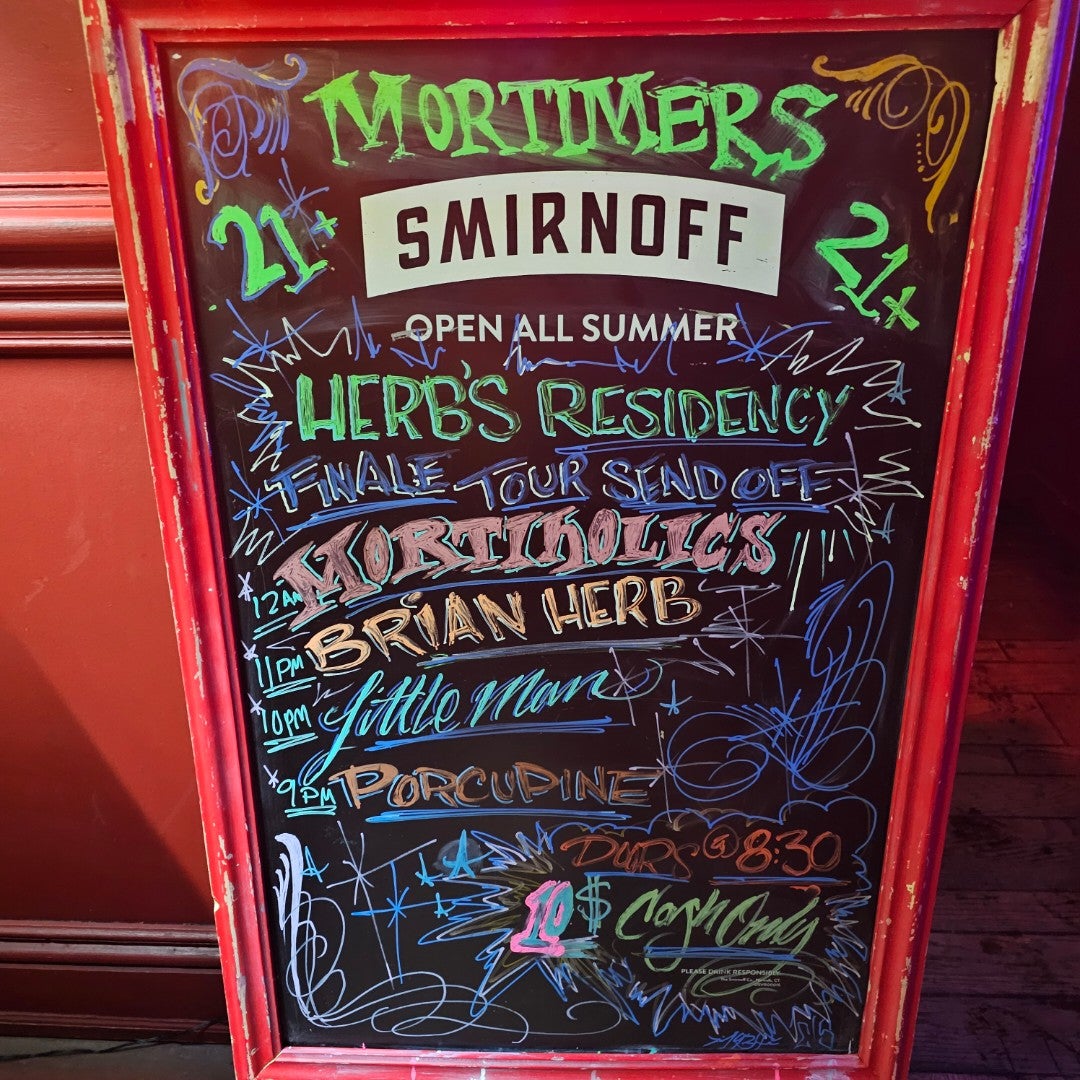 MORTIMERS
SMIRNOFF
21+ 21+
OPEN ALL SUMMER
HERB'S RESIDENCY
FINALE TOUR SEND OFF
12AM MORTIHOLICS
11PM BRIAN HERB
10PM Little Man
9PM PORCUPINE
DURS @ 8:30
10$ Cash Only
PLEASE DRINK RESPONSIBLY.